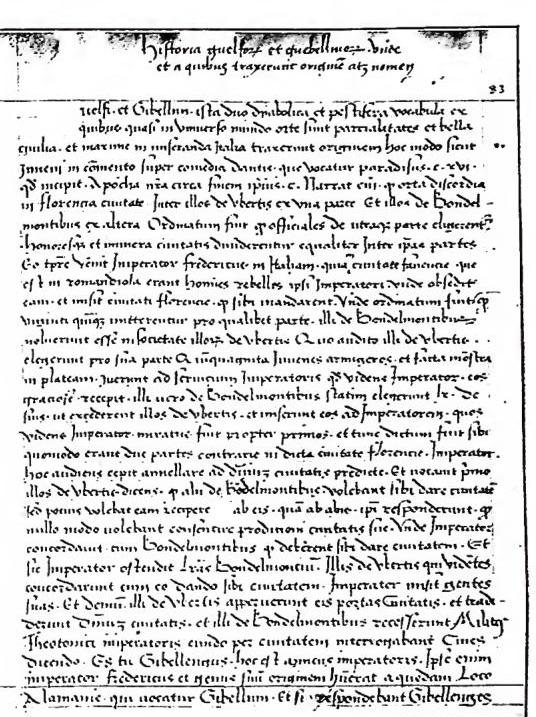 Historia guelfoꝝ et guebellinoꝝ. vnde
et a quibus traxerunt originē atqꝫ nomen
83
uelfi. et Gibellini. ista duo diabolica et pestifera vocabula ex
quibus quasi in vniuerso mundo orte sunt parcialitates et bella
ciuilia. et maxime in miseranda Italia traxerunt originem hoc modo sicut
Inueni in cōmento super comedia dantis. que vocatur paradisus. c. xvi.
qđ incipit. O pocha nr̄a circa finem ipius. c. Narrat eni. ꝙ orta discordia
in florencia ciuitate Inter illos de vbertis ex vna parte Et illos de Bondel-
montibus ex altera Ordinatum fuit ꝙ officiales de utraqꝫ parte eligerent᷑
honoresqꝫ et munera ciuitatis diuiderentur equaliter Inter ip̄as partes
Eo tp̄re venit Imperator fredericus in Italiam. quia ciuitate fauencie que
est in romandiola erant homīes rebelles ipsi Imperatori vnde obsedit
eam. et misit ciuitati florencie. ꝙ sibi mandarent. Vnde ordinatum fuit ꝙ
viginti quinqꝫ mitterentur pro qualibet parte. illi de Bondelmontibus
noluerunt esse in societate illoꝝ de vbertis Quo audito illi de vbertis
elegerunt pro sua parte Quinquaginta Iuuenes armigeros. et facta mōstra
in plateam. Iuerunt ad seruicium Imperatoris qđ videns Imperator. eos
graciose recepit. illi uero de Bondelmontibus statim elegerunt lx. de
suis. ut excederent illos de vbertis. et miserunt eos ad Imperatorem. quos
videns Imperator. miratus fuit propter primos. et tunc dictum fuit sibi
quomodo erant due partes contrarie in dicta ciuitate florencie. Imperator
hoc audiens cepit annellare ad dn̄iuꝫ ciuitatis predicte. Et notauit pͥmo
illos de vbertis dicens. ꝙ alii de Bōdelmontibus volebant sibi dare ciuitatē
sed pocius volebat eam recipere ab eis. quā ab aliis. ipi responderunt. ꝙ
nullo modo volebant consentire prodicioni ciuitatis sue. Vnde Imperator
concordauit cum Bondelmontibus ꝙ deberent sibi dare ciuitatem. Et
sic Imperator ostendit lr̄as Bondelmoncium. Illis de vbertis qui vidētes
concordarunt cum eo dando sibi ciuitatem. Imperator misit gentes
suas. Et demū. illi de vbertis apperuerunt eis portas Ciuitatis. et tradi-
derunt Dn̄iuꝫ ciuitatis. et illi de Bondelmontibus recesserunt Milites
Theotonici imperatoris eundo per ciuitatem interrogabant Ciues
dicendo. Es tu Gibellengus. hoc est amicus imperatoris. Ipse enim
imperator fredericus et genus suū originem hūerat a quodam Loco
Alamanie. qui uocatur Gibellinn. Et si respondebant Gibellenges